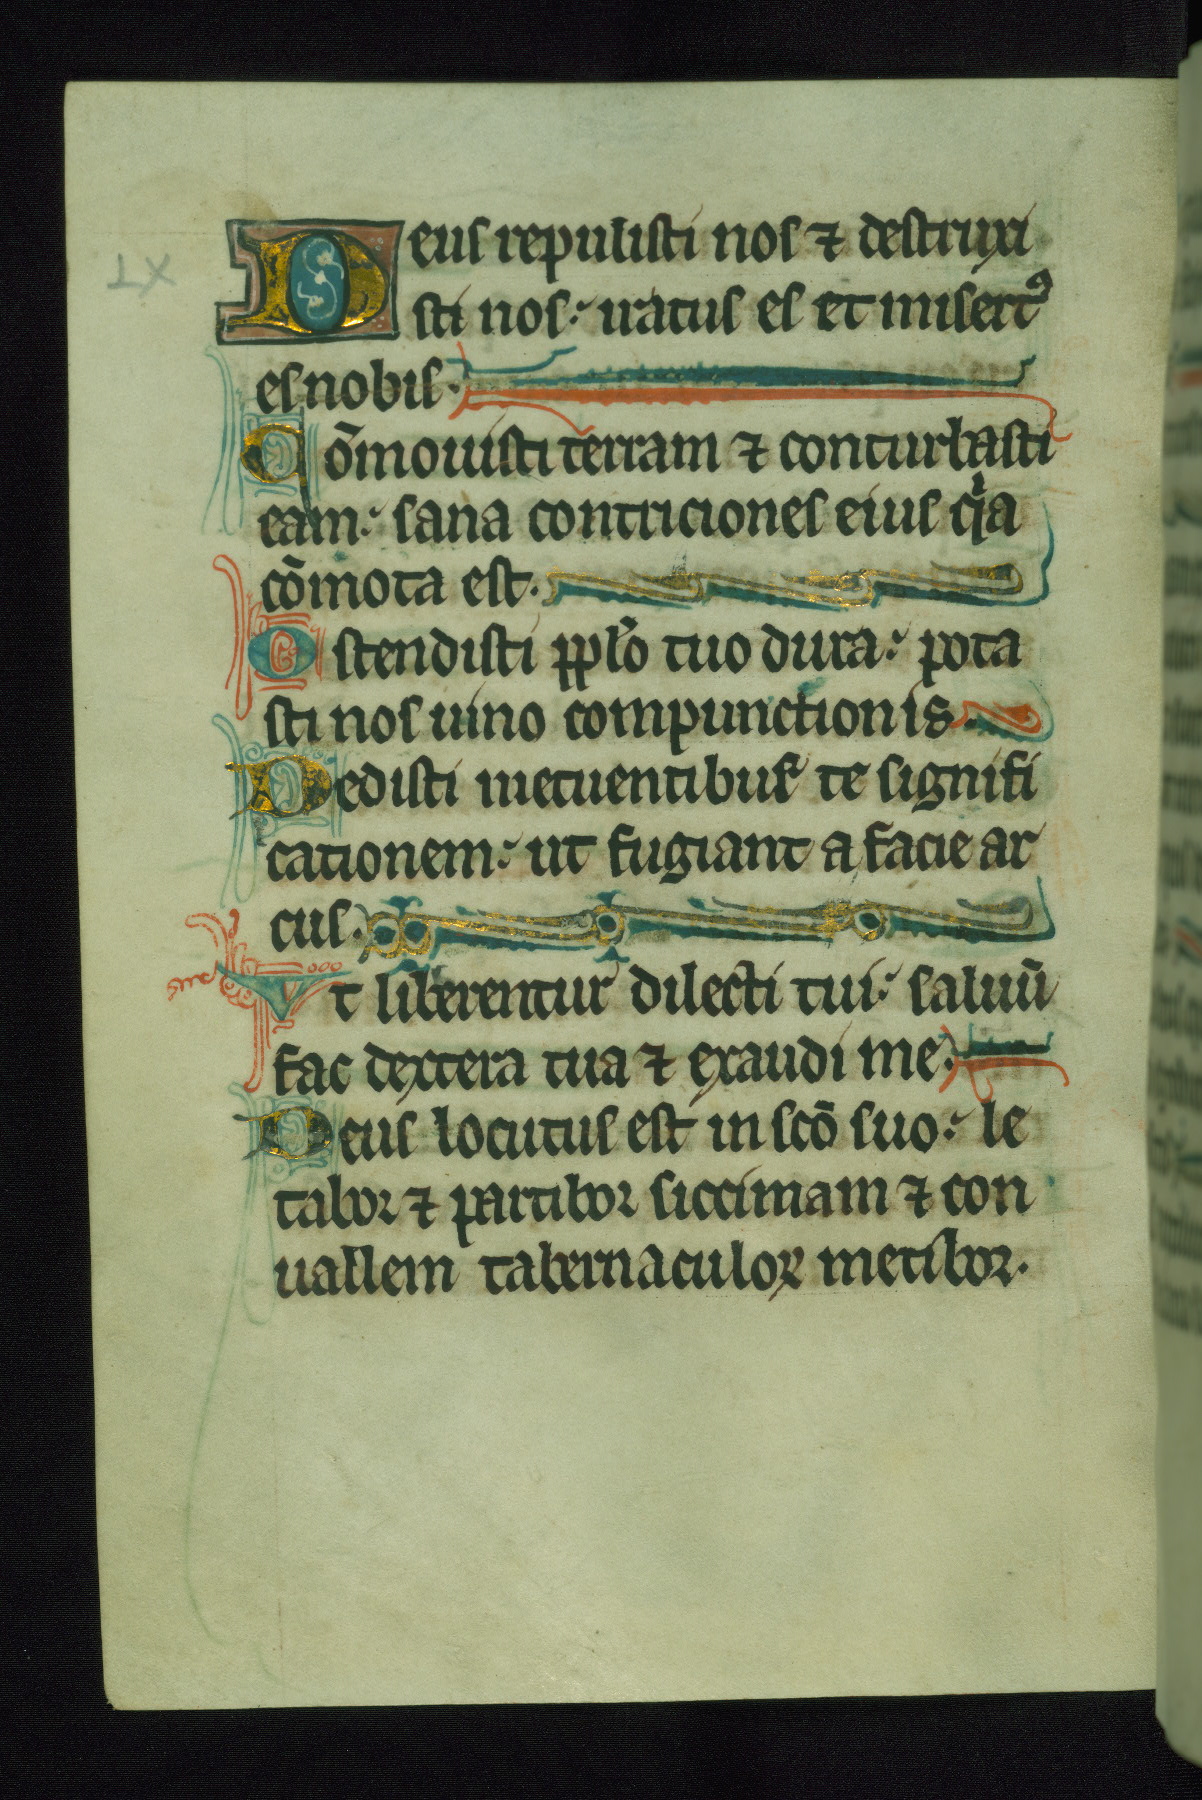 LX
Deus repulisti nos ⁊ destruxi
sti nos: iratus es et misertꝰ
es nobis.
Cōmouisti terram ⁊ conturbasti
eam: sana contriciones eius qͥa
cōmota est.
Ostendisti pplo̅ tuo dura: pota
sti nos uino compunctionis.
Dedisti metuentibus te signifi
cationem: ut fugiant a facie ar
cus.
Vt liberentur dilecti tui: saluū
fac dextera tua ⁊ exaudi me.
Deus locutus est in scō suo: le
tabor ⁊ partibor siccimam ⁊ con
uallem tabernaculoꝝ metibor.